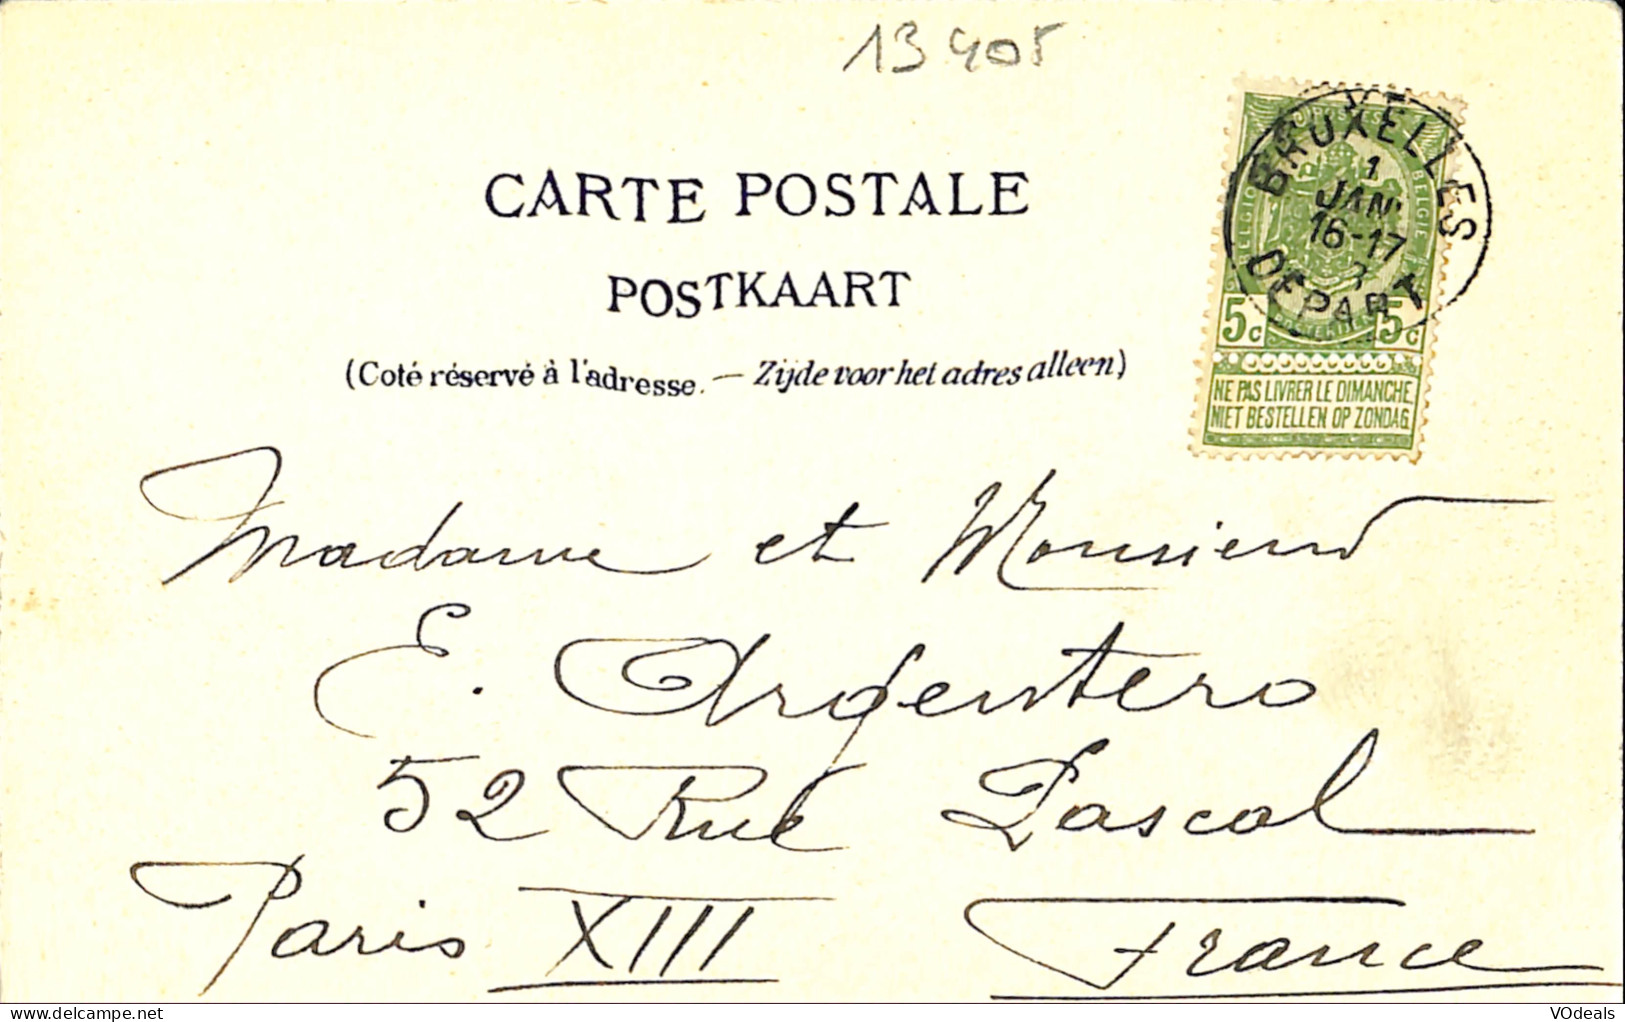 13405
CARTE POSTALE
POSTKAART
(Coté réservé à l'adresse. — Zijde voor het adres alleen)
BRUXELLES
1
JAN
16-17
DEPART
BELGIQUE
BELGIE
5c 5c
NE PAS LIVRER LE DIMANCHE.
NIET BESTELLEN OP ZONDAG.
Madame et Monsieur
E. Argentero
52 Rue Pascal
Paris XIII France
© VOdeals